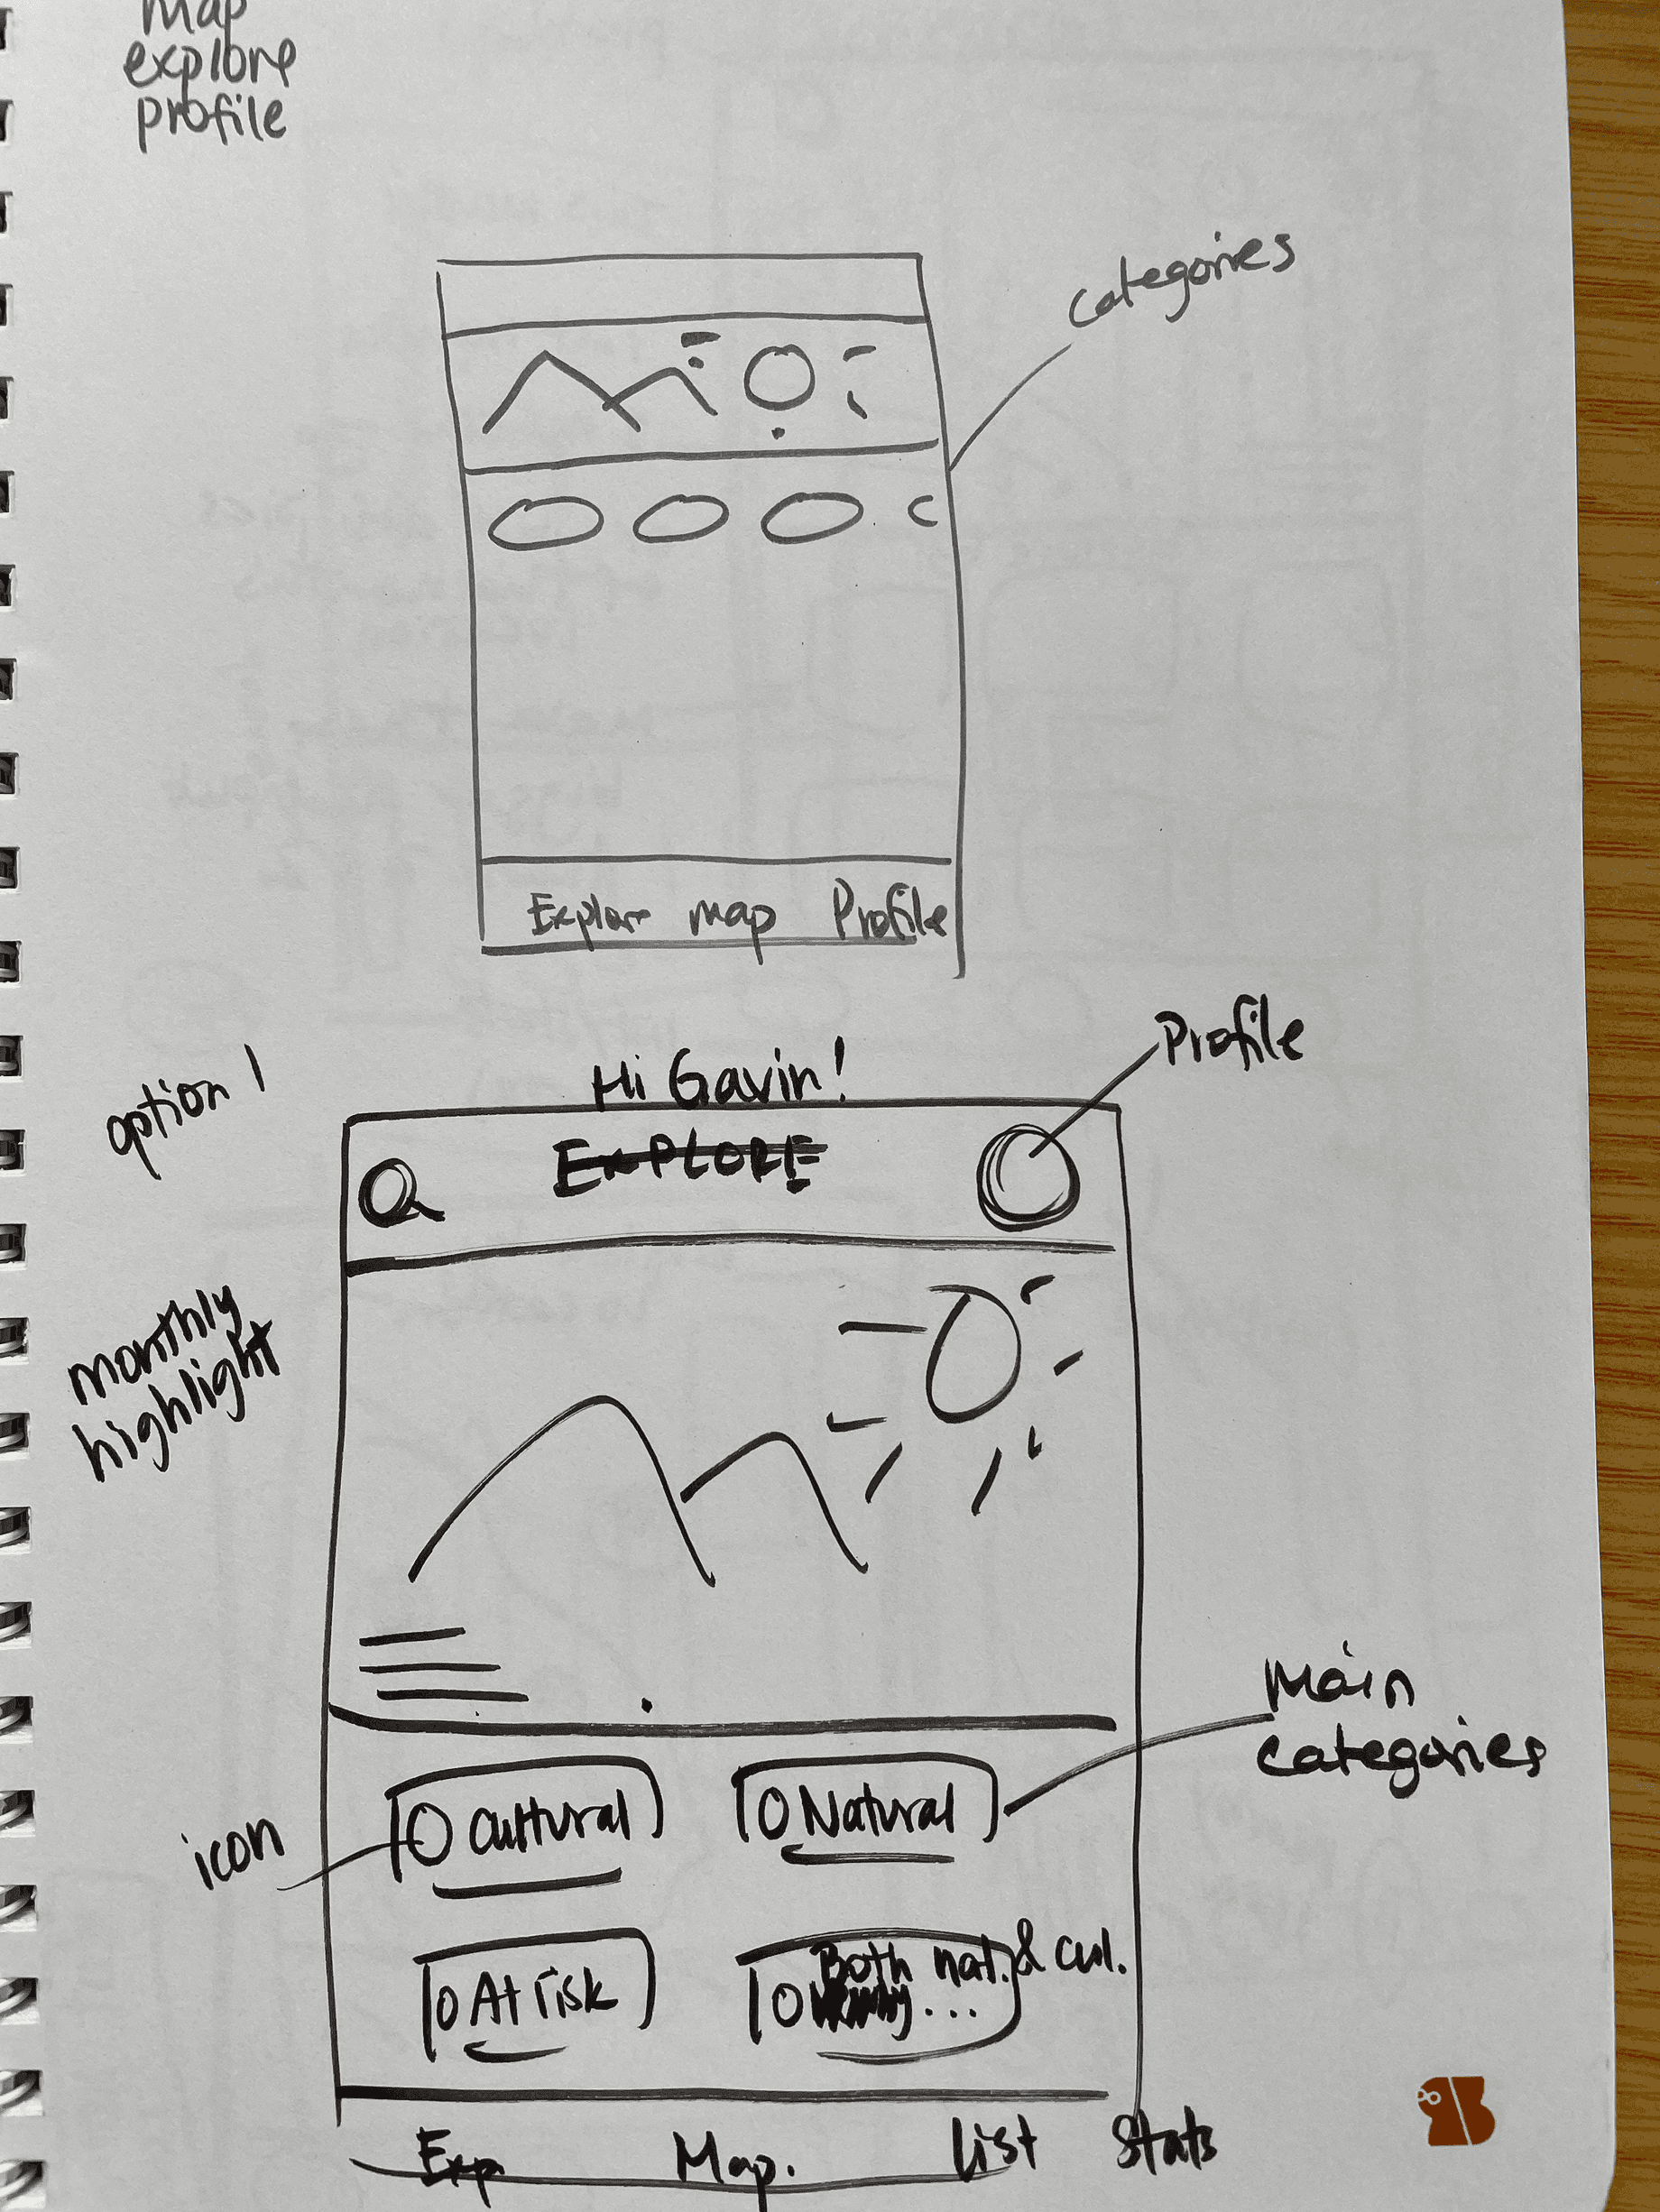 map
explore
profile
categories
Explore map Profile
option 1
Hi Gavin!
Profile
EXPLORE
monthly
highlight
Main
categories
icon
Cultural
Natural
At risk
Both nat. & cul.
...
Exp Map. List Stats